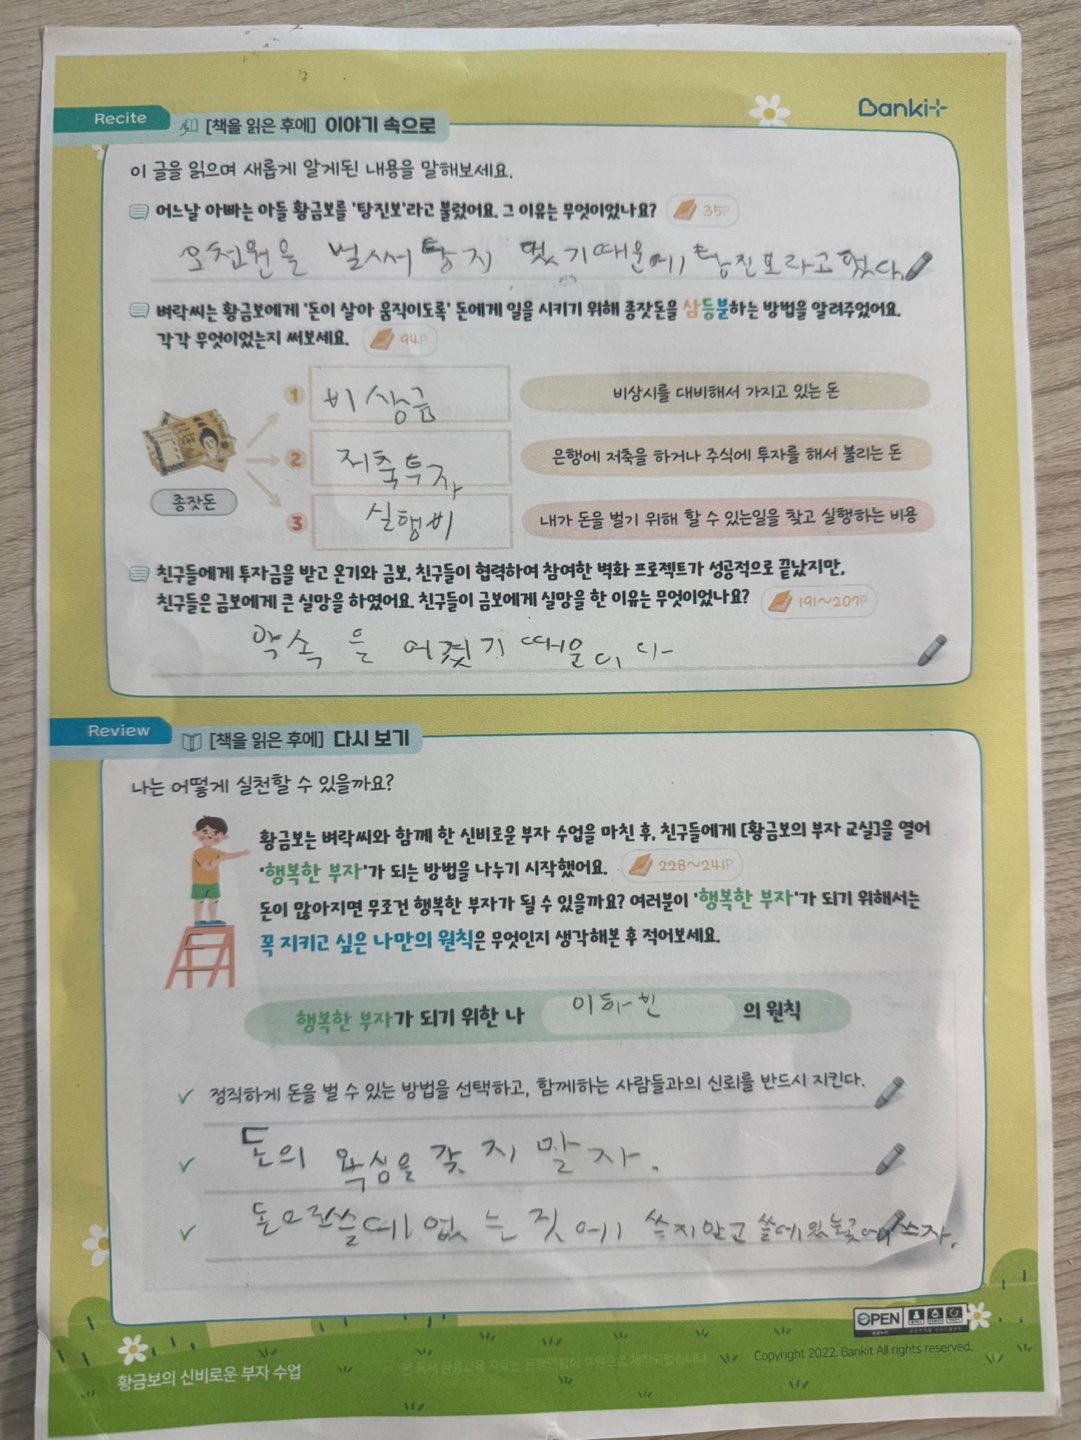 Recite
[책을 읽은 후에] 이야기 속으로
Banki+
이 글을 읽으며 새롭게 알게된 내용을 말해보세요.
어느날 아빠는 아들 황금보를 '탕진보'라고 불렀어요. 그 이유는 무엇이었나요? 35P
오천원을 벌써 탕지 했기때문에 탕진보라고 했다.
벼락씨는 황금보에게 '돈이 살아 움직이도록' 돈에게 일을 시키기 위해 종잣돈을 삼등분하는 방법을 알려주었어요.
각각 무엇이었는지 써보세요. 94P
1 비상금 비상시를 대비해서 가지고 있는 돈
2 저축투자 은행에 저축을 하거나 주식에 투자를 해서 불리는 돈
종잣돈
3 실행비 내가 돈을 벌기 위해 할 수 있는일을 찾고 실행하는 비용
친구들에게 투자금을 받고 온기와 금보, 친구들이 협력하여 참여한 벽화 프로젝트가 성공적으로 끝났지만,
친구들은 금보에게 큰 실망을 하였어요. 친구들이 금보에게 실망을 한 이유는 무엇이었나요? 191~207P
약속을 어겼기 때문이다
Review
[책을 읽은 후에] 다시 보기
나는 어떻게 실천할 수 있을까요?
황금보는 벼락씨와 함께 한 신비로운 부자 수업을 마친 후, 친구들에게 [황금보의 부자 교실]을 열어
'행복한 부자'가 되는 방법을 나누기 시작했어요. 228~241P
돈이 많아지면 무조건 행복한 부자가 될 수 있을까요? 여러분이 '행복한 부자'가 되기 위해서는
꼭 지키고 싶은 나만의 원칙은 무엇인지 생각해본 후 적어보세요.
행복한 부자가 되기 위한 나 이하빈 의 원칙
정직하게 돈을 벌 수 있는 방법을 선택하고, 함께하는 사람들과의 신뢰를 반드시 지킨다.
돈의 욕심을 갖지 말자.
쓸데없는 짓에 쓰지안고 쓸데있는곳에 쓰자.
OPEN
Copyright 2022. Bankit All rights reserved.
황금보의 신비로운 부자 수업